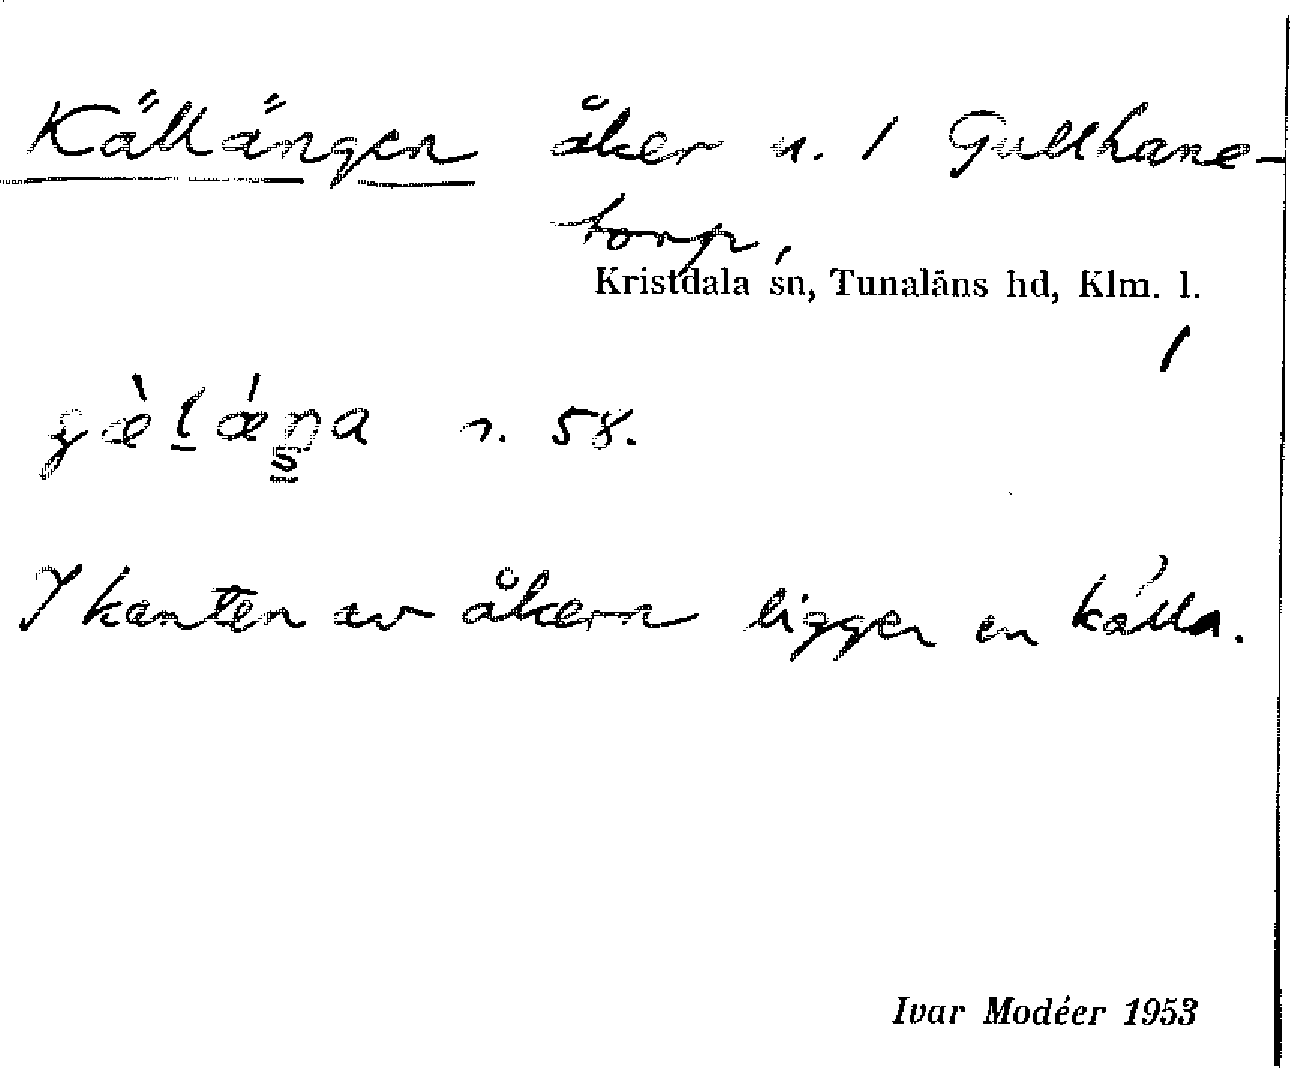 Källängen åker n. 1 Gullhane-
torp,
Kristdala sn, Tunaläns hd, Klm. l.
r. 58.
I kanten av åkern ligger en källa.
Ivar Modéer 1953